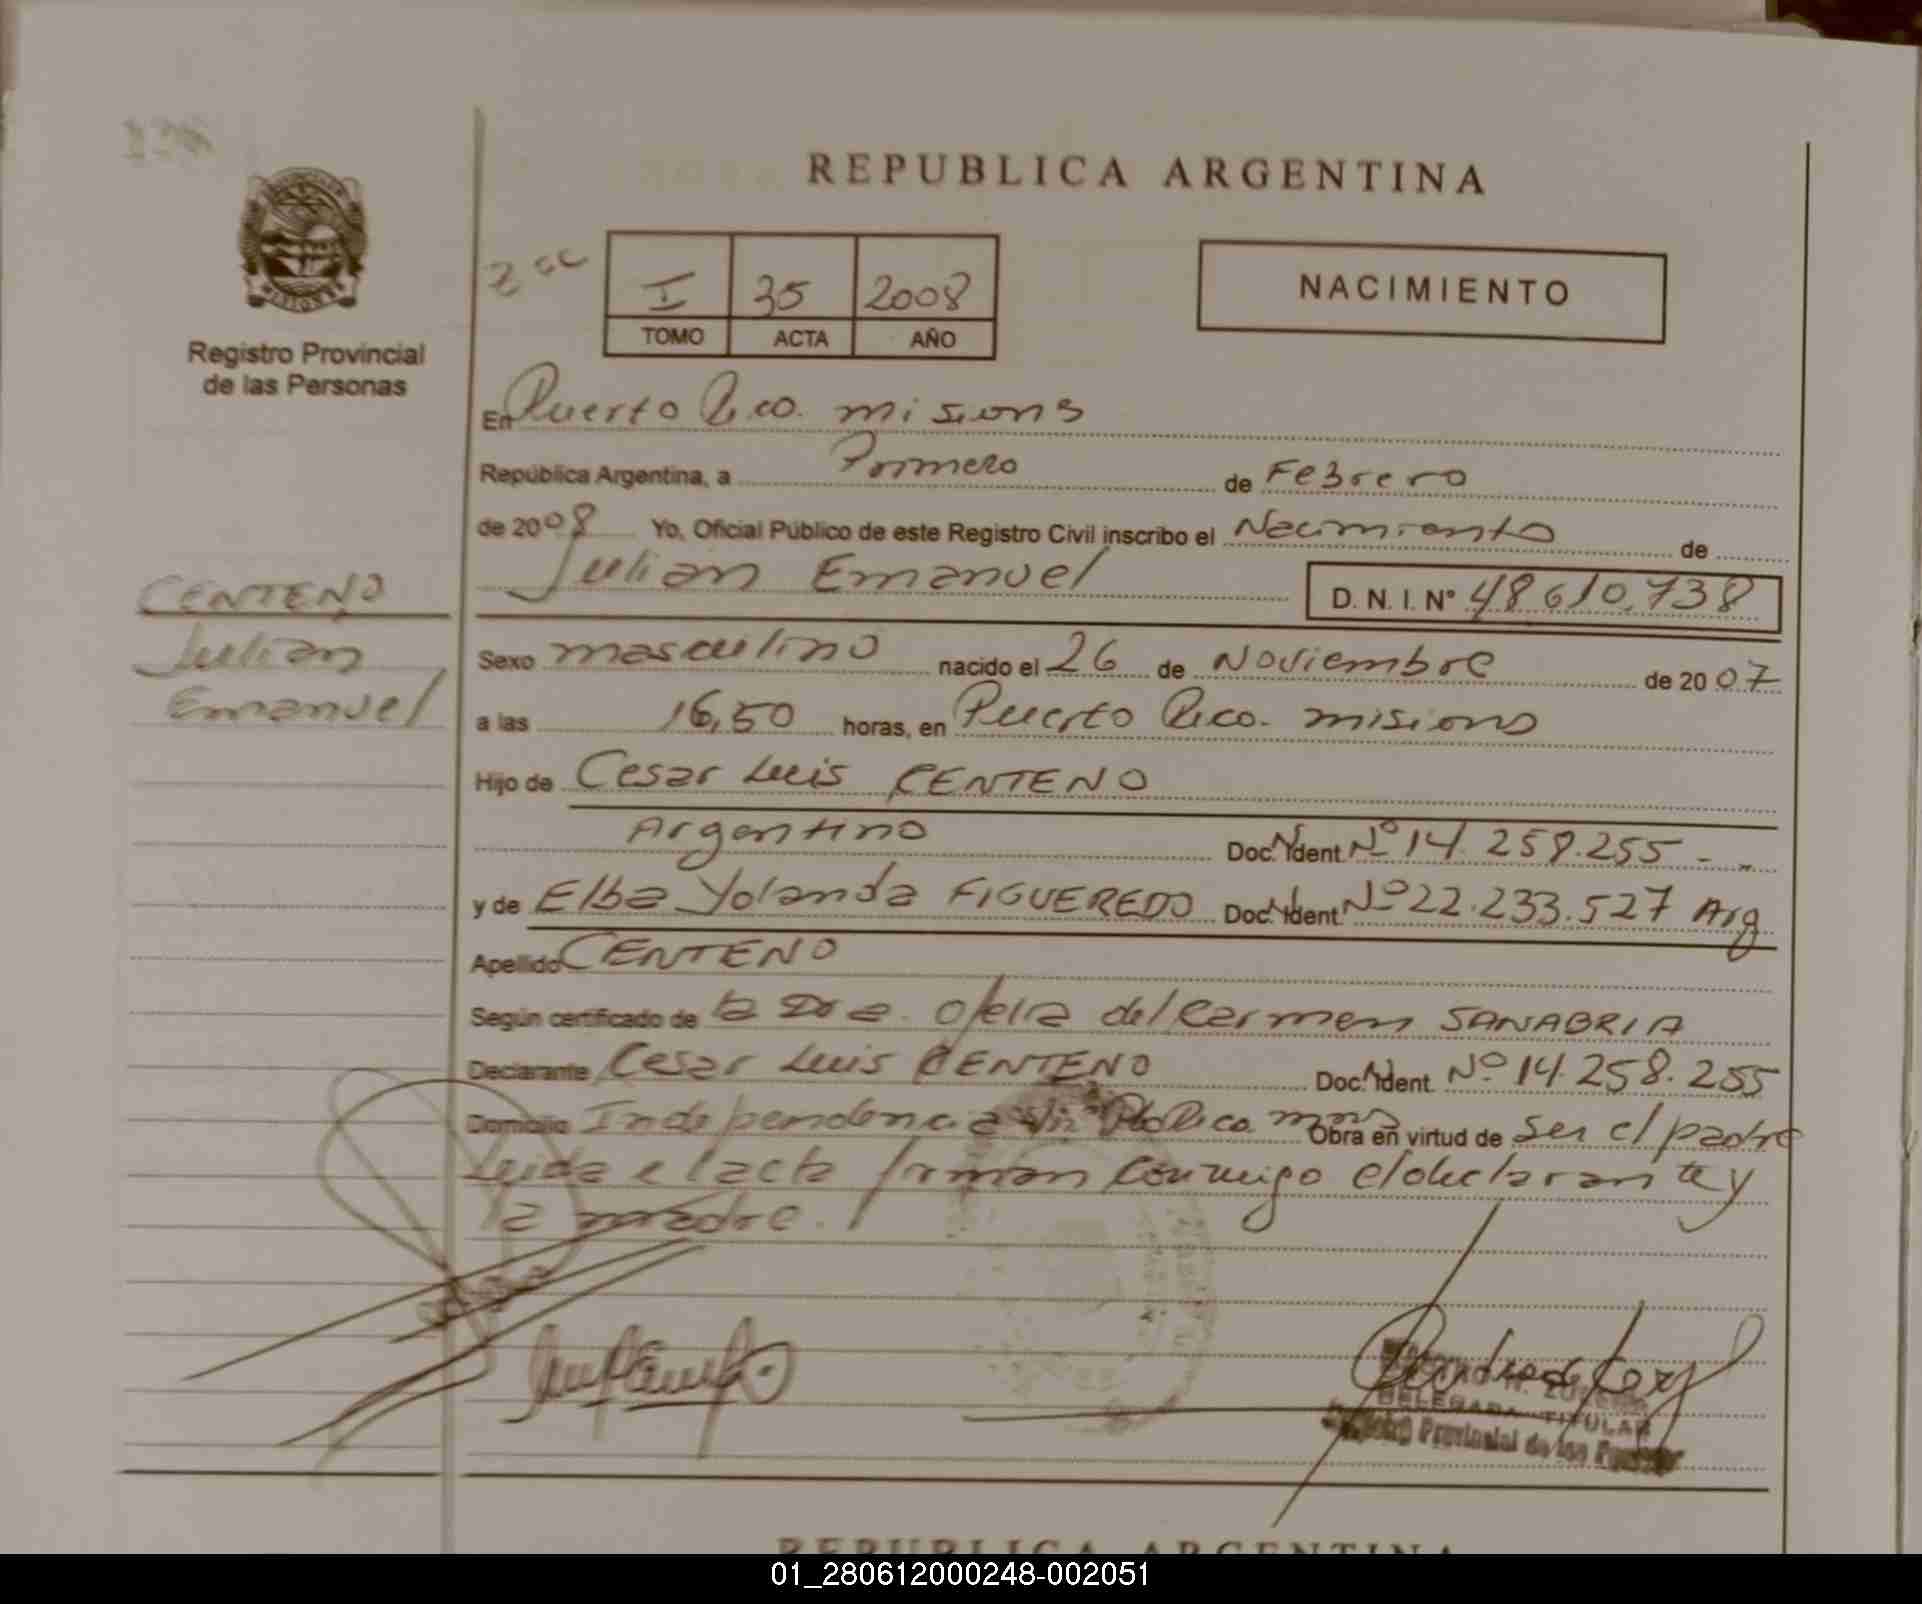 REPUBLICA ARGENTINA
I 35 2008
TOMO ACTA AÑO
NACIMIENTO
Registro Provincial
de las Personas
En Puerto Rico. misions
República Argentina, a Primero de Febrero
de 2008 Yo, Oficial Público de este Registro Civil inscribo el Nacimiento de
Julian Emanuel D. N. I. Nº 48.610.738
CENTENO
Julian
Emanuel
Sexo masculino nacido el 26 de Noviembre de 2007
a las 16,50 horas, en Puerto Rico. misions
Hijo de Cesar Luis CENTENO
Argentino Doc. Ident Nº 14.258.255 -
y de Elba Yolanda FIGUEREDO Doc. Ident Nº 22.233.527 Arg
Apellido CENTENO
Según certificado de la Dra. Ofelia del Carmen SANABRIA
Declarante Cesar Luis CENTENO Doc. Ident. Nº 14.258.255
Domicilio Independencia Obra en virtud de ser el padre
Leida el acta firman conmigo el declarante y
la madre.
DELEGADA TITULAR
Registro Provincial de las Personas
REPUBLICA ARGENTINA
01_280612000248-002051